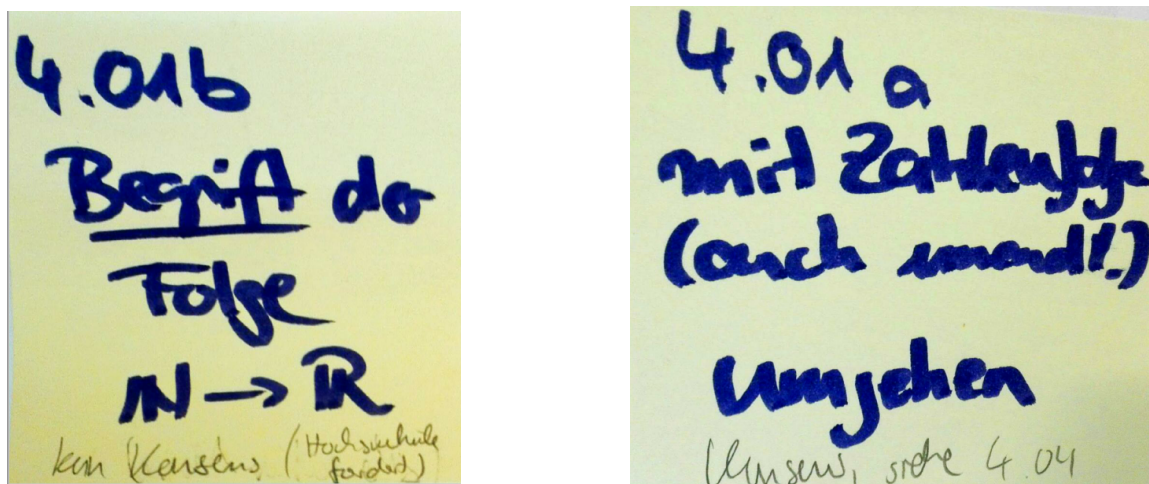 4.01b
Begriff der
Folge
ℕ → ℝ
kein Konsens (Hochschule
fordert)
4.01 a
mit Zahlenfolge
(auch unendl.)
umgehen
Konsens, siehe 4.04